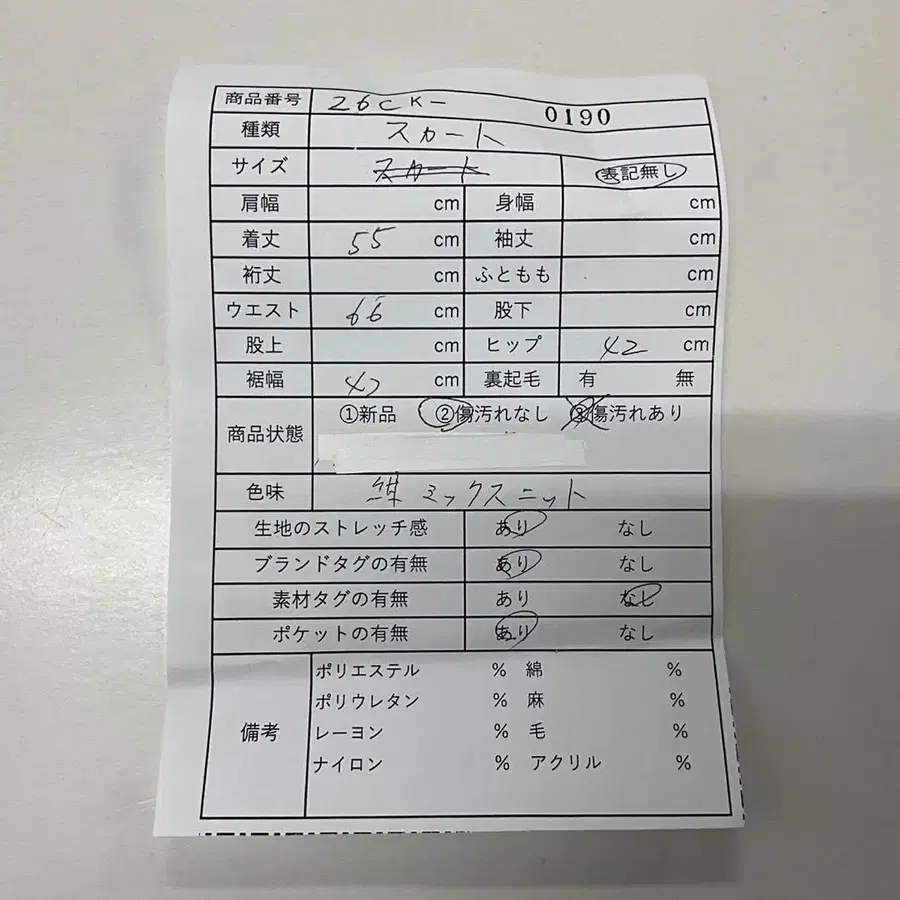 商品番号 26C K- 0190
種類 スカート
サイズ スカート 表記無し
肩幅 cm 身幅 cm
着丈 55 cm 袖丈 cm
裄丈 cm ふともも cm
ウエスト 66 cm 股下 cm
股上 cm ヒップ 42 cm
裾幅 cm 裏起毛 有 無
商品状態 ①新品 ②傷汚れなし ③傷汚れあり
色味 ミックスニット
生地のストレッチ感 あり なし
ブランドタグの有無 あり なし
素材タグの有無 あり なし
ポケットの有無 あり なし
備考
ポリエステル % 綿 %
ポリウレタン % 麻 %
レーヨン % 毛 %
ナイロン % アクリル %